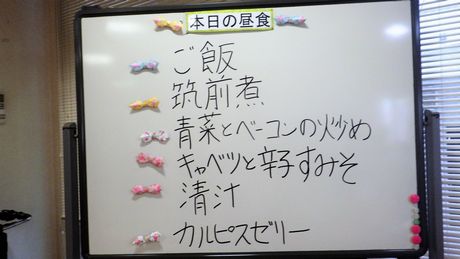 本日の昼食
ご飯
筑前煮
青菜とベーコンの炒め
キャベツと辛子すみそ
清汁
カルピスゼリー